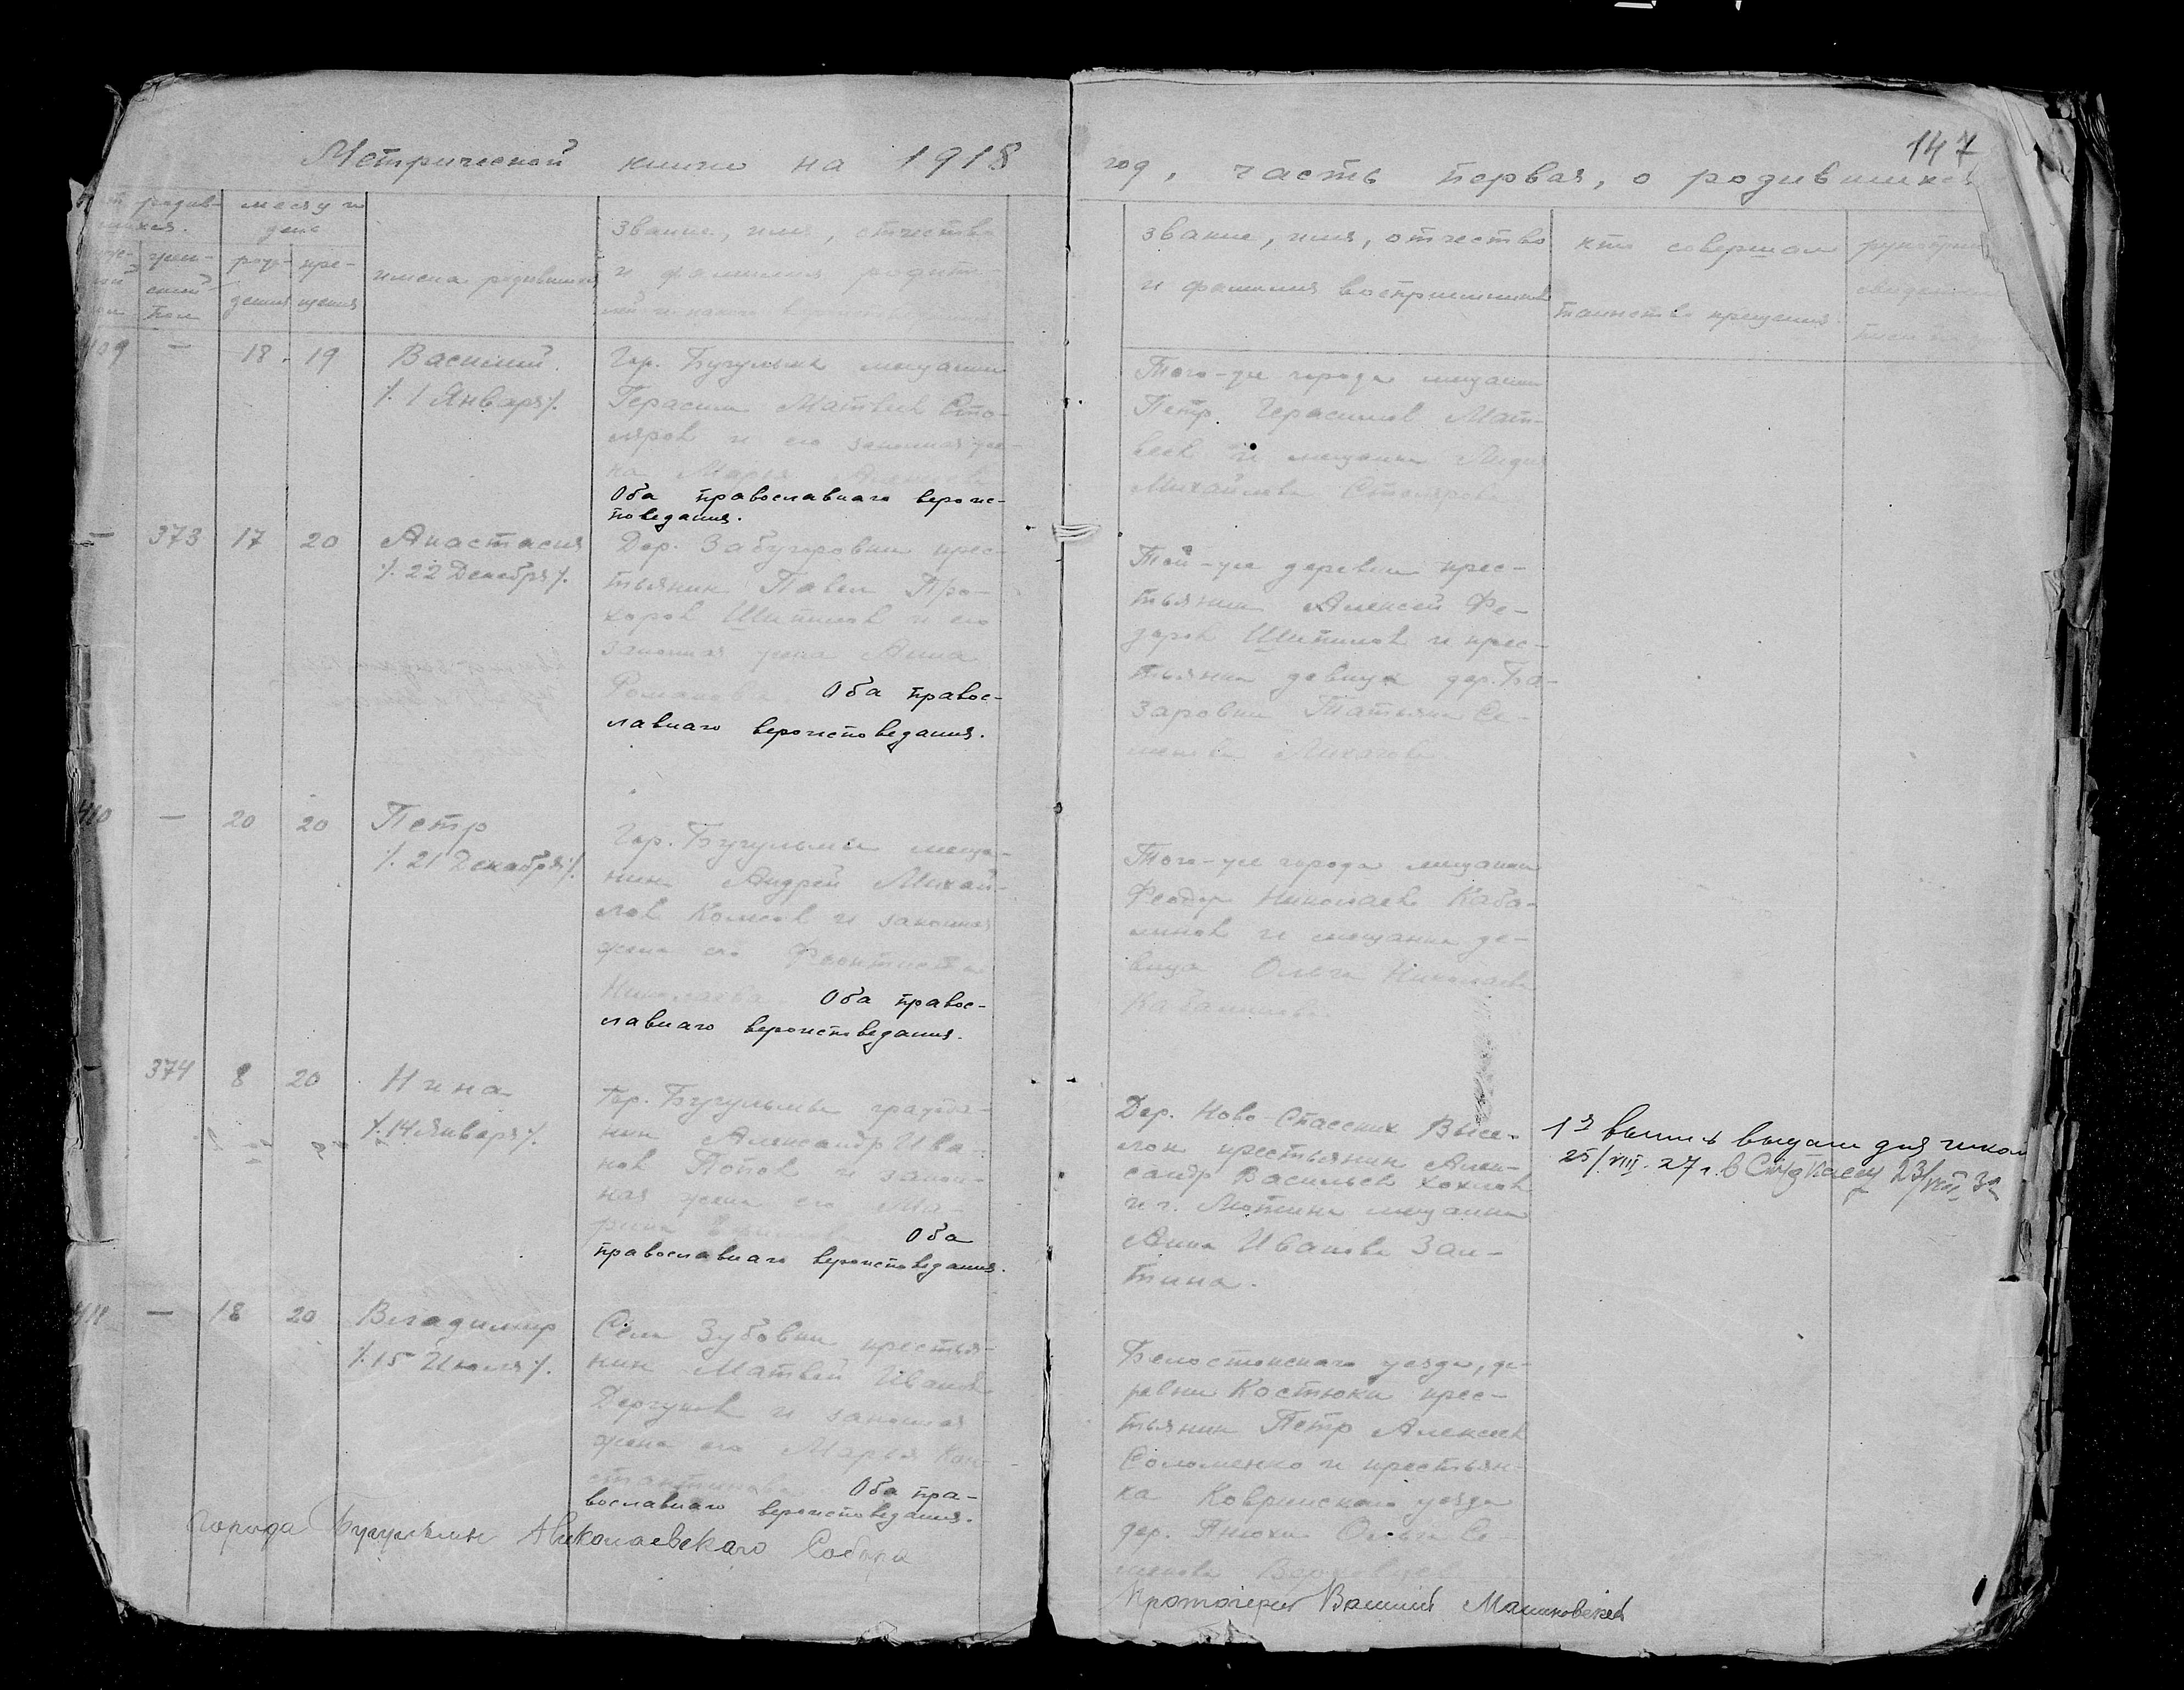 Метрической книги на 1918
год, часть первая, о родившихся
147
родив-
месяц и
день
рож-
дения
кре-
щения
имена родившихся
звание, имя, отчество
и фамилия родите-
звание, имя, отчество
и фамилия восприемников
кто совершал
таинство крещения
409 — 18. 19 Василий
/. 1 Января/.
Гор. Бугульма мещанин
Герасим Матвеев Сто-
ляров и его законная же-
на Марья
Оба православнаго вероис-
поведания.
Того-же города мещанин
Петр Герасимов Мат-
веев и мещанка Лидия
Михайлова Столярова
— 373 17 20 Анастасия
/. 22 Декабря/.
Дер. Забугоровки крес-
тьянин Павел Про-
хоров Шипилов и его
законная жена Анна
Романова Оба правос-
лавнаго вероисповедания.
Той-же деревни крес-
тьянин Алексей Фе-
доров Шипилов и крес-
тьянка девица дер. Ба-
заровки Татьяна Се-
менова
410 — 20 20 Петр
/. 21 Декабря/.
Гор. Бугульмы меща-
нин Андрей Михай-
лов Колесов и законная
жена его Феоктиста
Николаева Оба правос-
лавнаго вероисповедания.
Того-же города мещанин
Феодор Николаев Каба-
линов и мещанка де-
вица Ольга Николаева
374 8 20 Нина
/. 14 Января/.
Гор. Бугульмы гражда-
нин Александр Ива-
нов Попов и закон-
ная жена его Ма-
рина Оба
православнаго вероисповедания.
Дер. Ново-Спасских Высе-
лок крестьянин Алек-
сандр Васильев Хохлов
и г. мещанка
Анна Иванова Зап-
тина.
1я выпись выдана для школ
25/VIII-27 г. в 23/VIII 32
411 — 18 20 Владимир
/. 15 Июля/.
Села Зубовки крестья-
нин Матвей Иванов
Дергунов и законная
жена его Марья Кон-
стантинова Оба пра-
вославнаго вероисповедания.
Белостокскаго уезда, де-
ревни Костюки крес-
тьянин Петр Алексеев
Соломенко и крестьян-
ка Кобринскаго уезда
дер. Ольга Се-
менова
города Бугульмы Николаевскаго Собора
Протоиерей Василий Малиновский